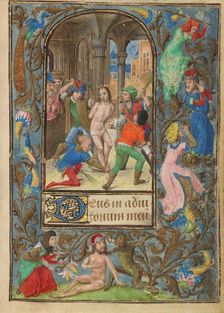 Deus in adiu
torium meu